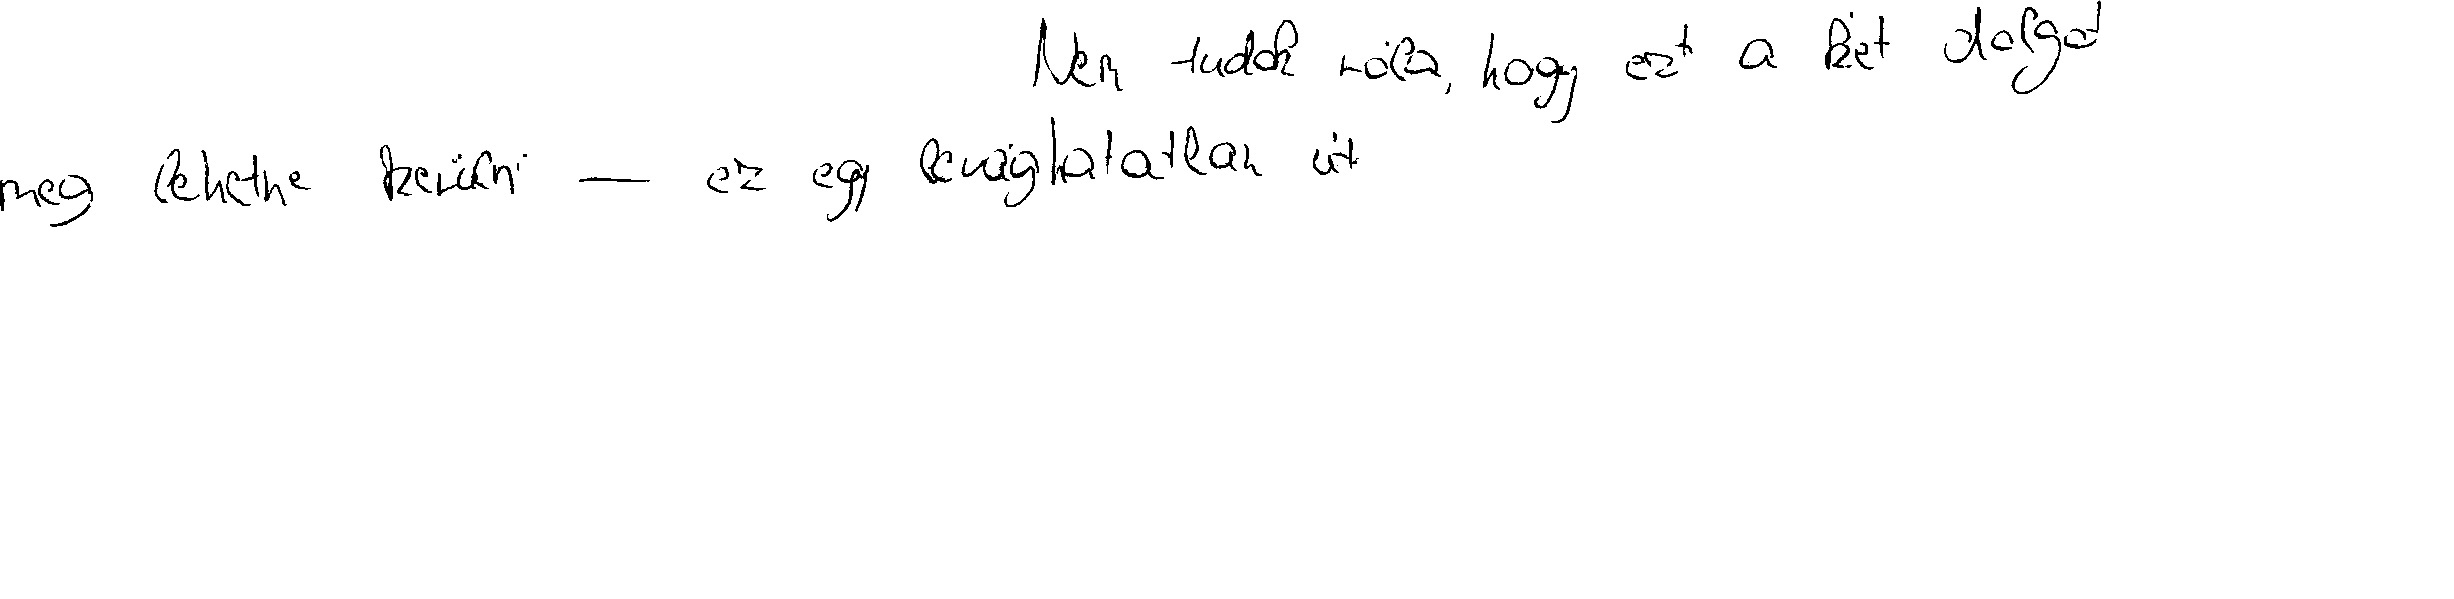 Nem tudok róla, hogy ezt a két dolgot
meg lehetne kerülni — ez egy levághatatlan út